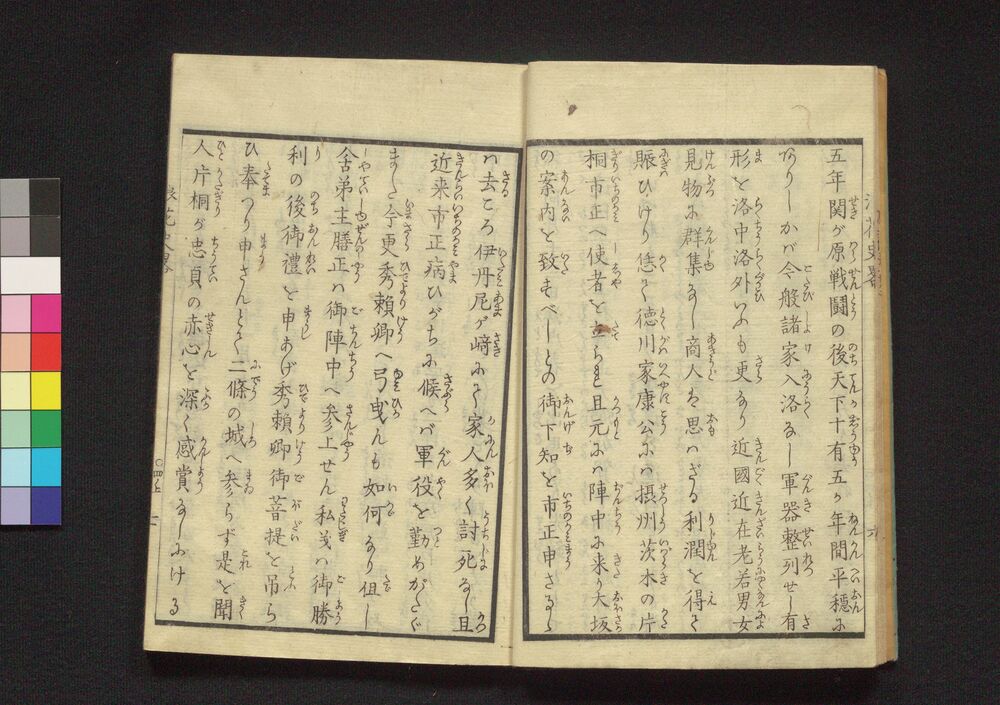 五年関が原戦闘の後天下十有五が年間平穏に
ありしかバ今般諸家入洛なし軍器整列せし有
形を洛中洛外いふも更なり近國近在老若男女
見物に群集なし商人は思はざる利潤を得て
賑ひけり恁て徳川家康公にハ摂州茨木の片
桐市正へ使者を立られ且元にハ陣中に来り大坂
の案内を致すべしとの御下知を市正申さるゝ
ハ去ころ伊丹尼が﨑にて家人多く討死なし且
近来市正病ひがちに候へバ軍役を勤めがたく
ました今更秀頼卿へ弓曳んも如何なり但し
舎弟主膳正ハ御陣中へ参上せん私義ハ御勝
利の後御禮を申あげ秀頼卿御菩提を吊ら
ひ奉つり申さんとて二條の城へ参らず是を聞
人片桐が忠貞の赤心を深く感賞なしにける